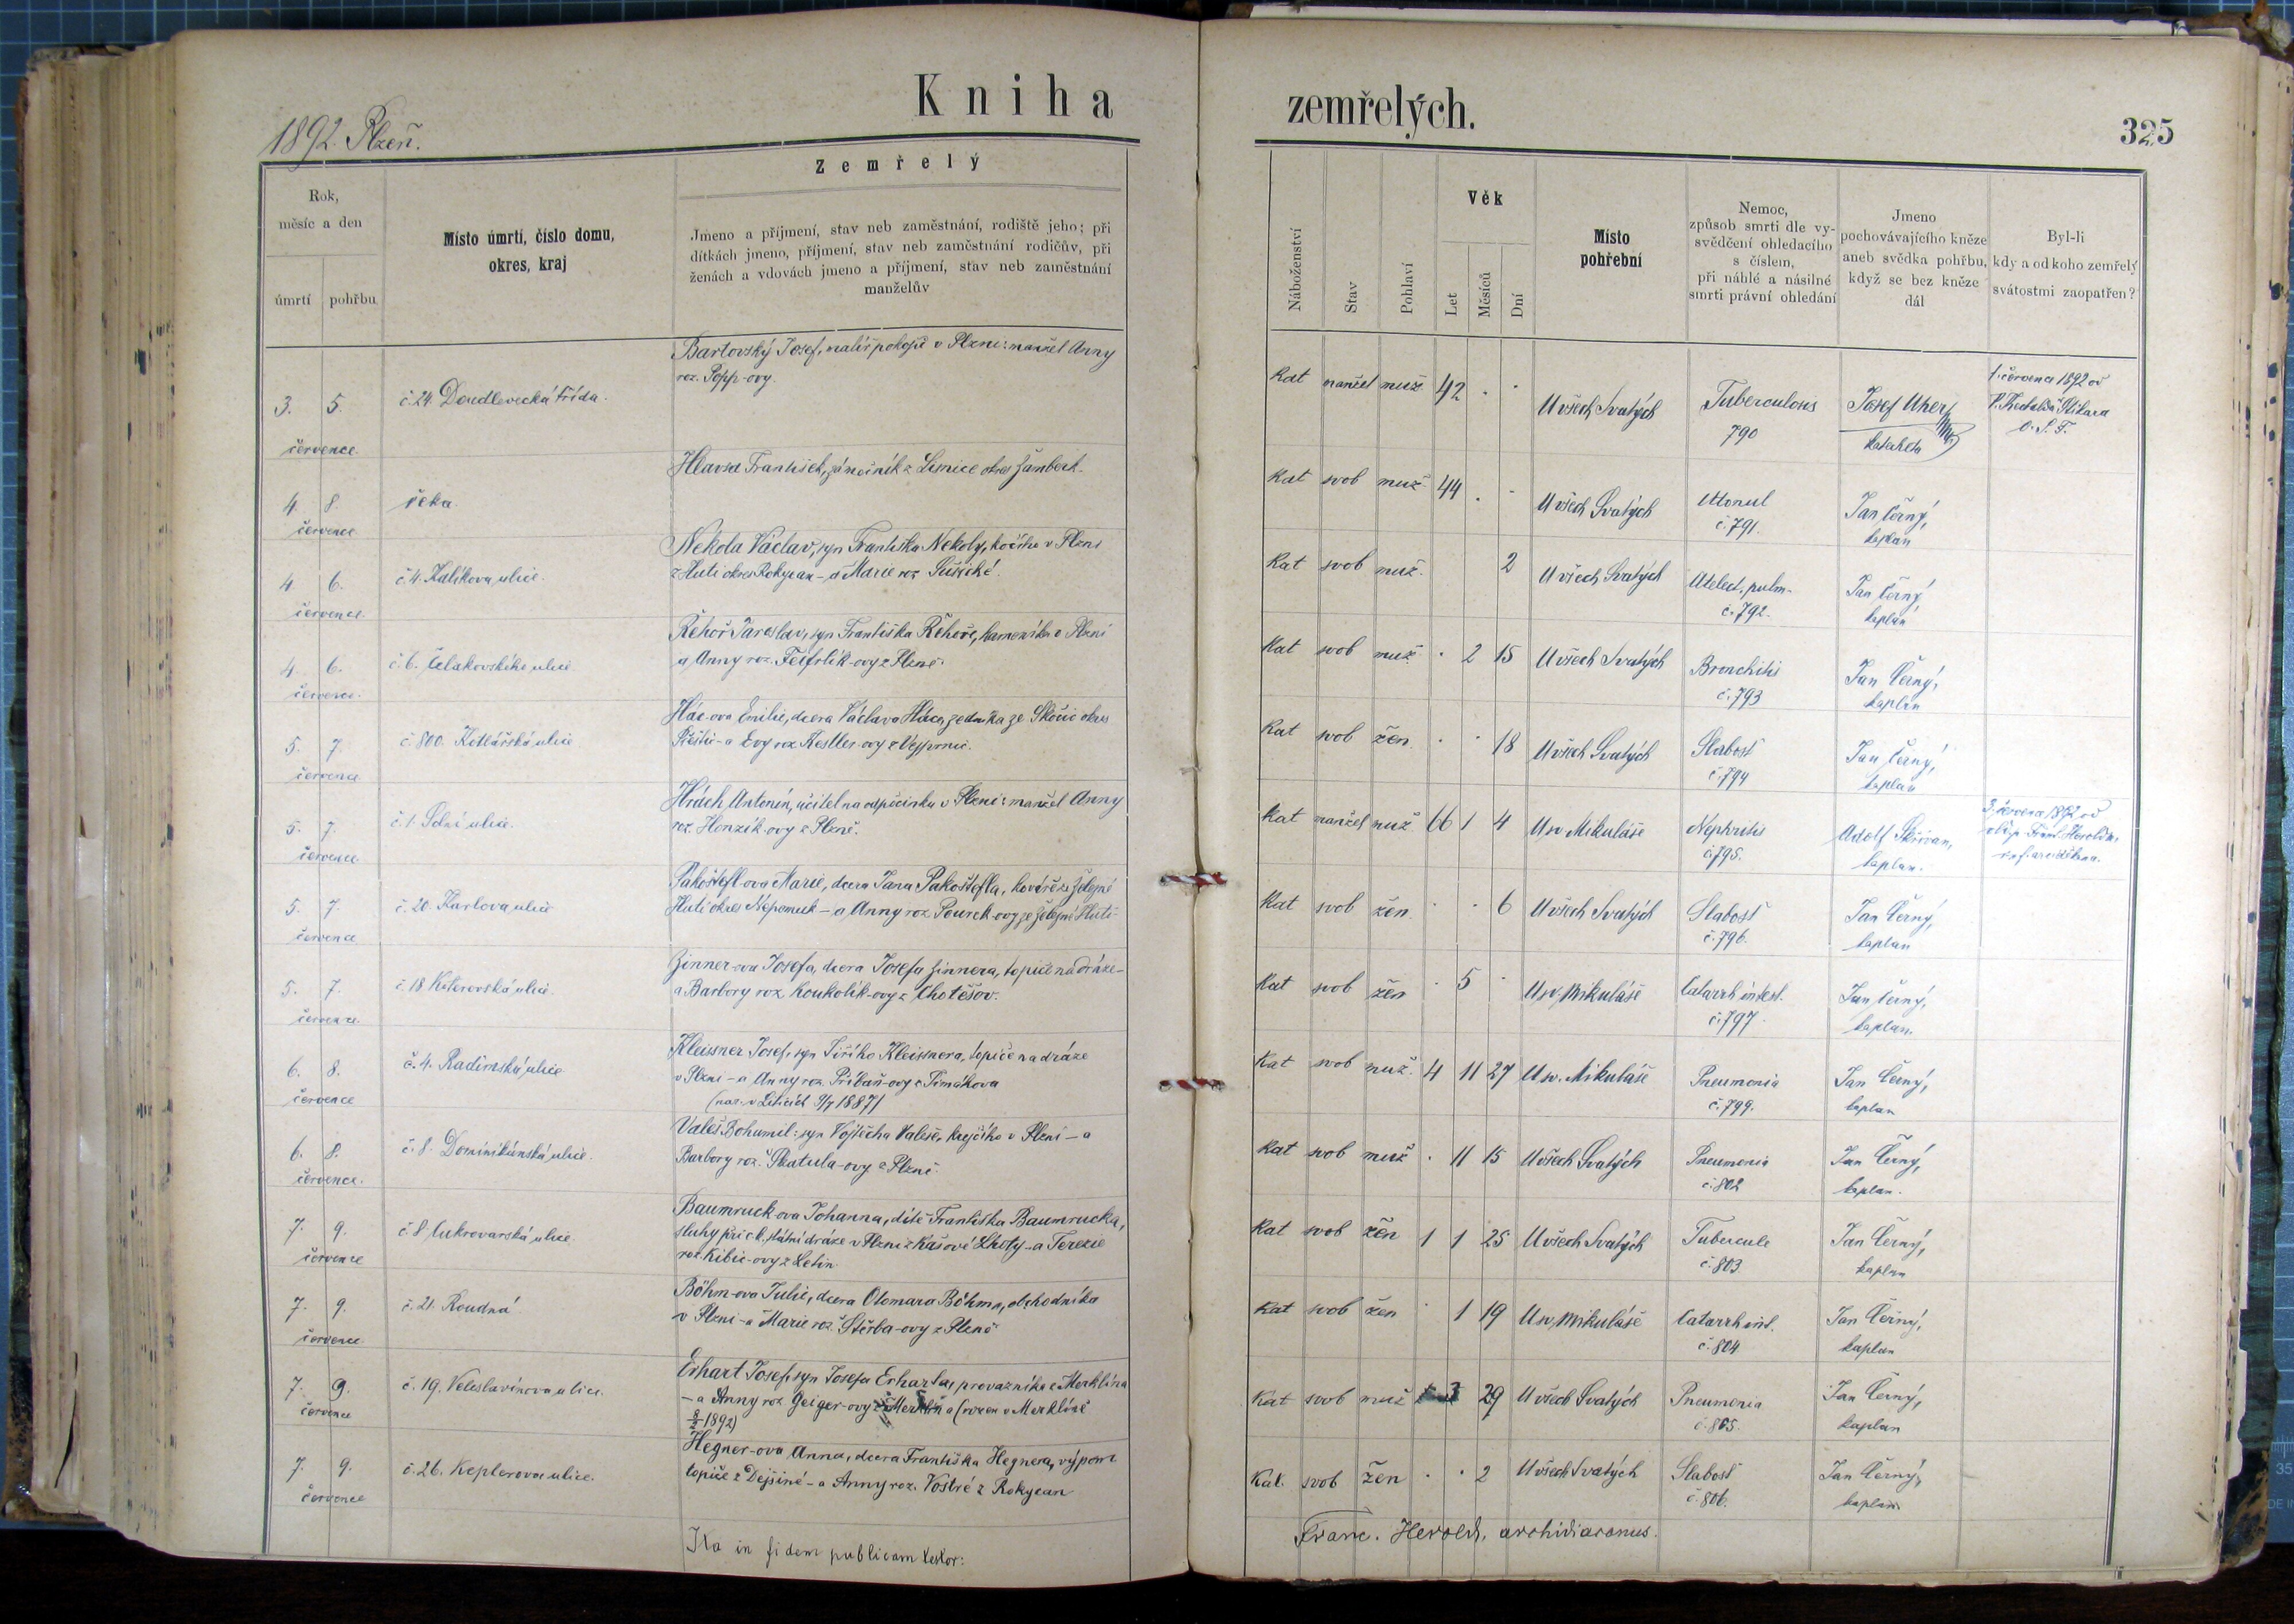 Kniha zemřelých.
1892. Plzeň.
325
Rok,
měsíc a den
úmrtí
pohřbu
Místo úmrtí, číslo domu,
okres, kraj
Zemřelý
Jmeno a příjmení, stav neb zaměstnání, rodiště jeho; při
dítkách jmeno, příjmení, stav neb zaměstnání rodičův, při
ženách a vdovách jmeno a příjmení, stav neb zaměstnání
manželův
Náboženství
Stav
Pohlaví
Věk
Let
Měsíců
Dní
Místo
pohřební
Nemoc,
způsob smrti dle vy-
svědčení ohledacího
s číslem,
při náhlé a násilné
smrti právní ohledání
Jmeno
pochovávajícího kněze
aneb svědka pohřbu,
když se bez kněze
dál
Byl-li
kdy a od koho zemřelý
svátostmi zaopatřen?
3. 5.
července
č. 24. Doudlevecká třída.
Bartovský Josef, malíř pokojů v Plzni: manžel Anny
roz. Popp-ovy.
Kat manžel muž 42 . .
U všech Svatých
Tuberculosis
790
Josef Uher
katecheta
1. července 1892 od
P. Štikara
O. S. F.
4. 8.
července
řeka.
Hlavsa František, zámečník z okres Žamberk.
Kat svob muž 44 . .
U všech Svatých
Utonul
č. 791.
Jan Černý,
kaplan
4 6.
července
č. 4. Kalikova ulice.
Nekola Václav, syn Františka Nekoly, kočího v Plzni
z Huti okres Rokycan - a Marie roz
Kat svob muž. 2
U všech Svatých
Atelect. pulm-
č. 792.
Jan Černý
kaplan
4. 6.
července.
č. 6. Čelakovského ulice
Řehoř Jaroslav, syn Františka Řehoře, kameníka v Plzni
a Anny roz. Feifrlík-ovy z Plzně.
Kat svob muž . 2 15
U všech Svatých
Bronchitis
č. 793
Jan Černý,
kaplan
5. 7.
července
č. 800. Kotlářská ulice
Hác-ova Emilie, dcera Václava Háce, zedníka ze Skočic okres
Přeštic - a Evy roz Kestler-ovy z Vejprnic.
Kat svob žen. . . 18
U všech Svatých
Slabost
č. 794
Jan Černý,
kaplan
5. 7.
července
č. 1. Polní ulice.
Hrách Antonín, učitel na odpočinku v Plzni: manžel Anny
roz. Honzík-ovy z Plzně.
Kat manžel muž 66 1 4
U sv. Mikuláše
Nephritis
č. 795.
Adolf Skřivan,
kaplan.
3. července 1892 od
Frant. Herolda,
5. 7.
července
č. 20. Karlova ulice
Pakoštefl-ova Marie, dcera Jana Pakoštefla, kováře ze Železné
Huti okres Nepomuk - a Anny roz Pourek-ovy ze Železné Huti-
Kat svob žen. . . 6
U všech Svatých
Slabost
č. 796.
Jan Černý,
kaplan
5. 7.
července.
č. 18 Koterovská ulice.
Zinner-ova Josefa, dcera Josefa Zinnera, topiče na dráze-
a Barbory roz Koukolík-ovy z Chotěšov.
Kat svob žen . 5 .
U sv. Mikuláše
Catarrh intest.
č. 797.
Jan Černý,
kaplan.
6. 8.
července
č. 4. Radimská ulice
Kleissner Josef, syn Jiřího Kleissnera, topiče na dráze
v Plzni - a Anny roz. Přibáň-ovy z Timákova
(nar. v Liticích 9/7 1887)
Kat svob muž. 4 11 27
U sv. Mikuláše
Pneumonia
č. 799.
Jan Černý,
kaplan
6. 8.
července.
č. 8. Dominikánská ulice.
Valeš Bohumil: syn Vojtěcha Valeše, krejčího v Plzni - a
Barbory roz. Skatula-ovy z Plzně
Kat svob muž . 11 15
U všech Svatých
Pneumonia
č. 802
Jan Černý,
kaplan.
7. 9.
července
č. 8 Cukrovarská ulice.
Baumruck-ova Johanna, dítě Františka Baumrucka,
sluhy při c. k. státní dráze v Plzni z Kašové Lhoty - a Terezie
roz. Kibic-ovy z Letin.
Kat svob žen 1 1 25
U všech Svatých
Tubercule
č. 803.
Jan Černý,
kaplan
7. 9.
července
č. 21. Roudná
Böhm-ova Julie, dcera Otomara Böhma, obchodníka
v Plzni - a Marie roz. Štěrba-ovy z Plzně
Kat svob žen . 1 19
U sv. Mikuláše
Catarrh int.
č. 804.
Jan Černý,
kaplan
7. 9.
července
č. 19. Veleslavínova ulice.
Erhart Josef, syn Josefa Erharta, provazníka z Merklína
- a Anny roz Geiger-ovy z Merklína (rozen v Merklíně
8/3 1892)
Kat svob muž 3 29
U všech Svatých
Pneumonia
č. 805.
Jan Černý,
kaplan
7. 9.
července
č. 26. Keplerova ulice.
Hegner-ova Anna, dcera Františka Hegnera, výpom
topiče z Dejšiné - a Anny roz. Vostré z Rokycan
Kat. svob žen . . 2
U všech Svatých
Slabost
č. 806.
Jan Černý,
kaplan
Ita in fidem publicam testor:
Franc. Herold, archidiaconus.